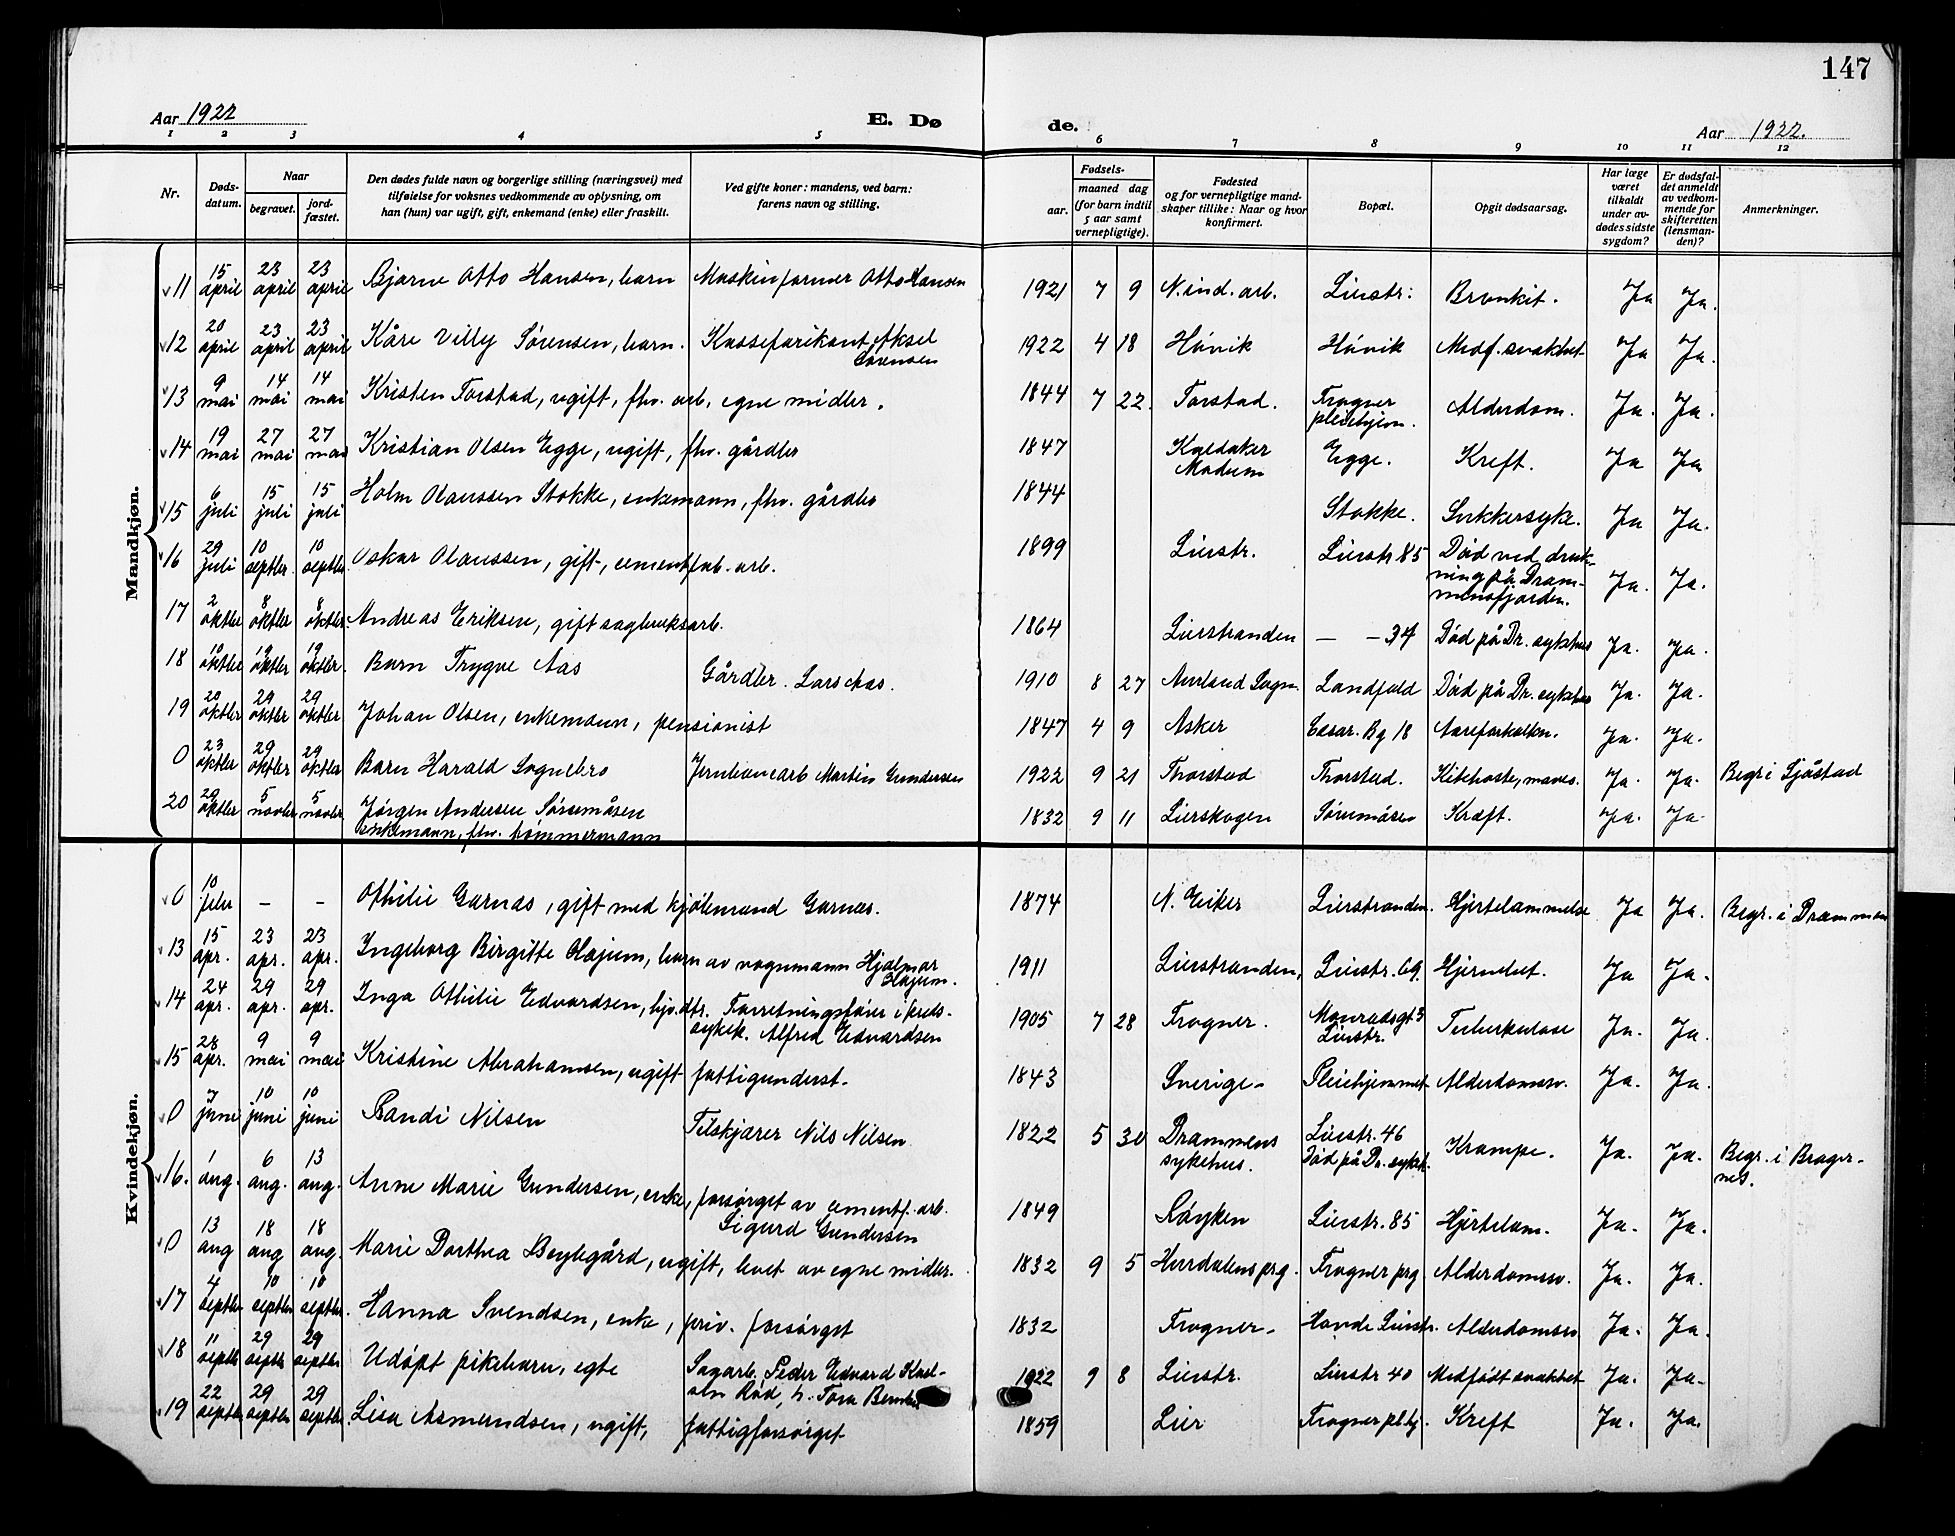 147
Aar 1922
E. Dø
de.
Aar 1922.
1 2 3 4 5 6 7 8 9 10 11 12
Nr.
Døds-
datum.
Naar
begravet.
jord-
fæstet.
Den dødes fulde navn og borgerlige stilling (næringsvei) med
tilføielse for voksnes vedkommende av oplysning, om
han (hun) var ugift, gift, enkemand (enke) eller fraskilt.
Ved gifte koner: mandens, ved barn:
farens navn og stilling.
Fødsels-
aar.
maaned dag
(for barn indtil
5 aar samt
vernepligtige).
Fødested
og for vernepligtige mand-
skaper tillike: Naar og hvor
konfirmert.
Bopæl.
Opgit dødsaarsag.
Har læge
været
tilkaldt
under av-
dødes sidste
sygdom?
Er dødsfal-
det anmeldt
av vedkom-
mende for
skifteretten
(lensman-
den)?
Anmerkninger.
Mandkjøn.
11 15 april 23 april 23 april Bjarne Otto Hansen, barn Maskinformer Otto Hansen 1921 7 9 N. ind. arb. Lierstr: Bronkit. Ja Ja.
12 20 april 23 april 23 april Kåre Villy Sørensen, barn. Kassefarikant Aksel
Sørensen 1922 4 18 Håvik Håvik Medf. svakhet Ja Ja.
13 9 mai 14 mai 14 mai Kristen Torstad, ugift, fhv. arb, egne midler. 1844 7 22. Torstad. Frogner
pleiehjem. Alderdom. Ja. Ja.
14 19 mai 27 mai 27 mai Kristian Olsen Egge, ugift, fhv. gårdbr 1847 Modum Egge. Kreft. Ja Ja
15 6 juli 15 juli 15 juli Holm Olaussen Stokke, enkemann, fhv. gårdbr 1844 Stokke. Sukkersyke. Ja Ja.
16 29 juli 10 septbr. 10 septbr. Oskar Olaussen, gift, cementfab. arb. 1899 Lierstr. Lierstr 85 Død ved druk-
ning på Dram-
mensfjorden. Ja. Ja.
17 2 oktbr 8 oktbr 8 oktbr. Andreas Eriksen, gift sagbruksarb. 1864 Lierstranden — — 34 Død på Dr. sykehus Ja. Ja.
18 oktbr 19 oktbr 19 oktbr. Barn Trygve Aas Gårdbr. Lars Aas. 1910 8 27 Aurland Sogn. Landfald Død på Dr. sykehus Ja. Ja.
19 20 oktbr 29 oktbr 29 oktbr Johan Olsen, enkemann, pensionist 1847 4 9 Asker Bg 18 Aareforkalkn. Ja. Ja.
0 23 oktbr 29 oktbr 29 oktbr Barn Harald Sognebro Jernbanearb Martin Gundersen 1922 9 21 Thorstad Thorstad. Kikhoste, Ja. Ja. Begr i Sjåstad
20 29 oktbr 5 novbr 5 novbr Jørgen Andersen Sørsmåsen
enkemann, fhv. tømmermann 1832 9 11 Lierskogen Kræft. Ja. Ja.
Kvindekjøn.
0 10 febr — — Othilie Garnæs, gift med kjølemand Garnæs. 1874 N. Eiker Lierstranden. Hjertelammelse Ja Ja. Begr. i Drammen
13 15 apr. 23 apr. 23 apr. Ingeborg Birgitte Olajum, barn av vognmann Hjalmar
Olajum. 1911 Lierstranden, Lierstr. 69. Ja Ja.
14 24 apr. 29 apr. 29 apr. Inga Othilie Edvardsen, hjv. dtr. Forretningsfører i kreds-
sykek. Alfred Edvardsen 1905 7 28 Frogner. Monradsgt 3
Lierstr. Tuberkulose Ja. Ja.
15 28 apr. 9 mai 9 mai Kristine Abrahamsen, ugift fattigunderst. 1843 Sverige - Pleiehjemmet Alderdomssv. Ja. Ja.
0 7 juni 10 juni 10 juni Randi Nilsen Nils Nilsen 1822 5 30 Drammens
sykehus. Lierstr. 46
Død på Dr. sykeh. Krampe. Ja. Ja. Begr. i Brager-
nes.
16. 1 aug. 6 aug. 13 aug. Anne Marie Gundersen, enke, forsørget av cementf. arb.
Sigurd Gundersen 1849 Røyken Lierstr. 85 Hjertelam. Ja. Ja.
0 13 aug 18 aug 18 aug. Marie Dorthea Beylegård, ugift, levet av egne midler. 1832 9 5 Hurdalens prg. Frogner prg Alderdomssv. Ja. Ja.
17 4 septbr 10 septbr 10 septbr. Hanna Svendsen, enke, priv. forsørget 1832 Frogner - Lierstr. Alderdomssv Ja. Ja.
18 11 septbr 29 septbr 29 septbr Udøpt pikebarn, egte Sagarb. Peder Edvard
Rød, h. Tora 1922 9 8 Lierstr. Lierstr 40 Medfødt svakhet Ja. Ja.
19 22 septbr 29 septbr 29 septbr Lisa Asmundsen, ugift, fattigforsørget 1859 Lier Frogner pl.hj. Kreft Ja. Ja.